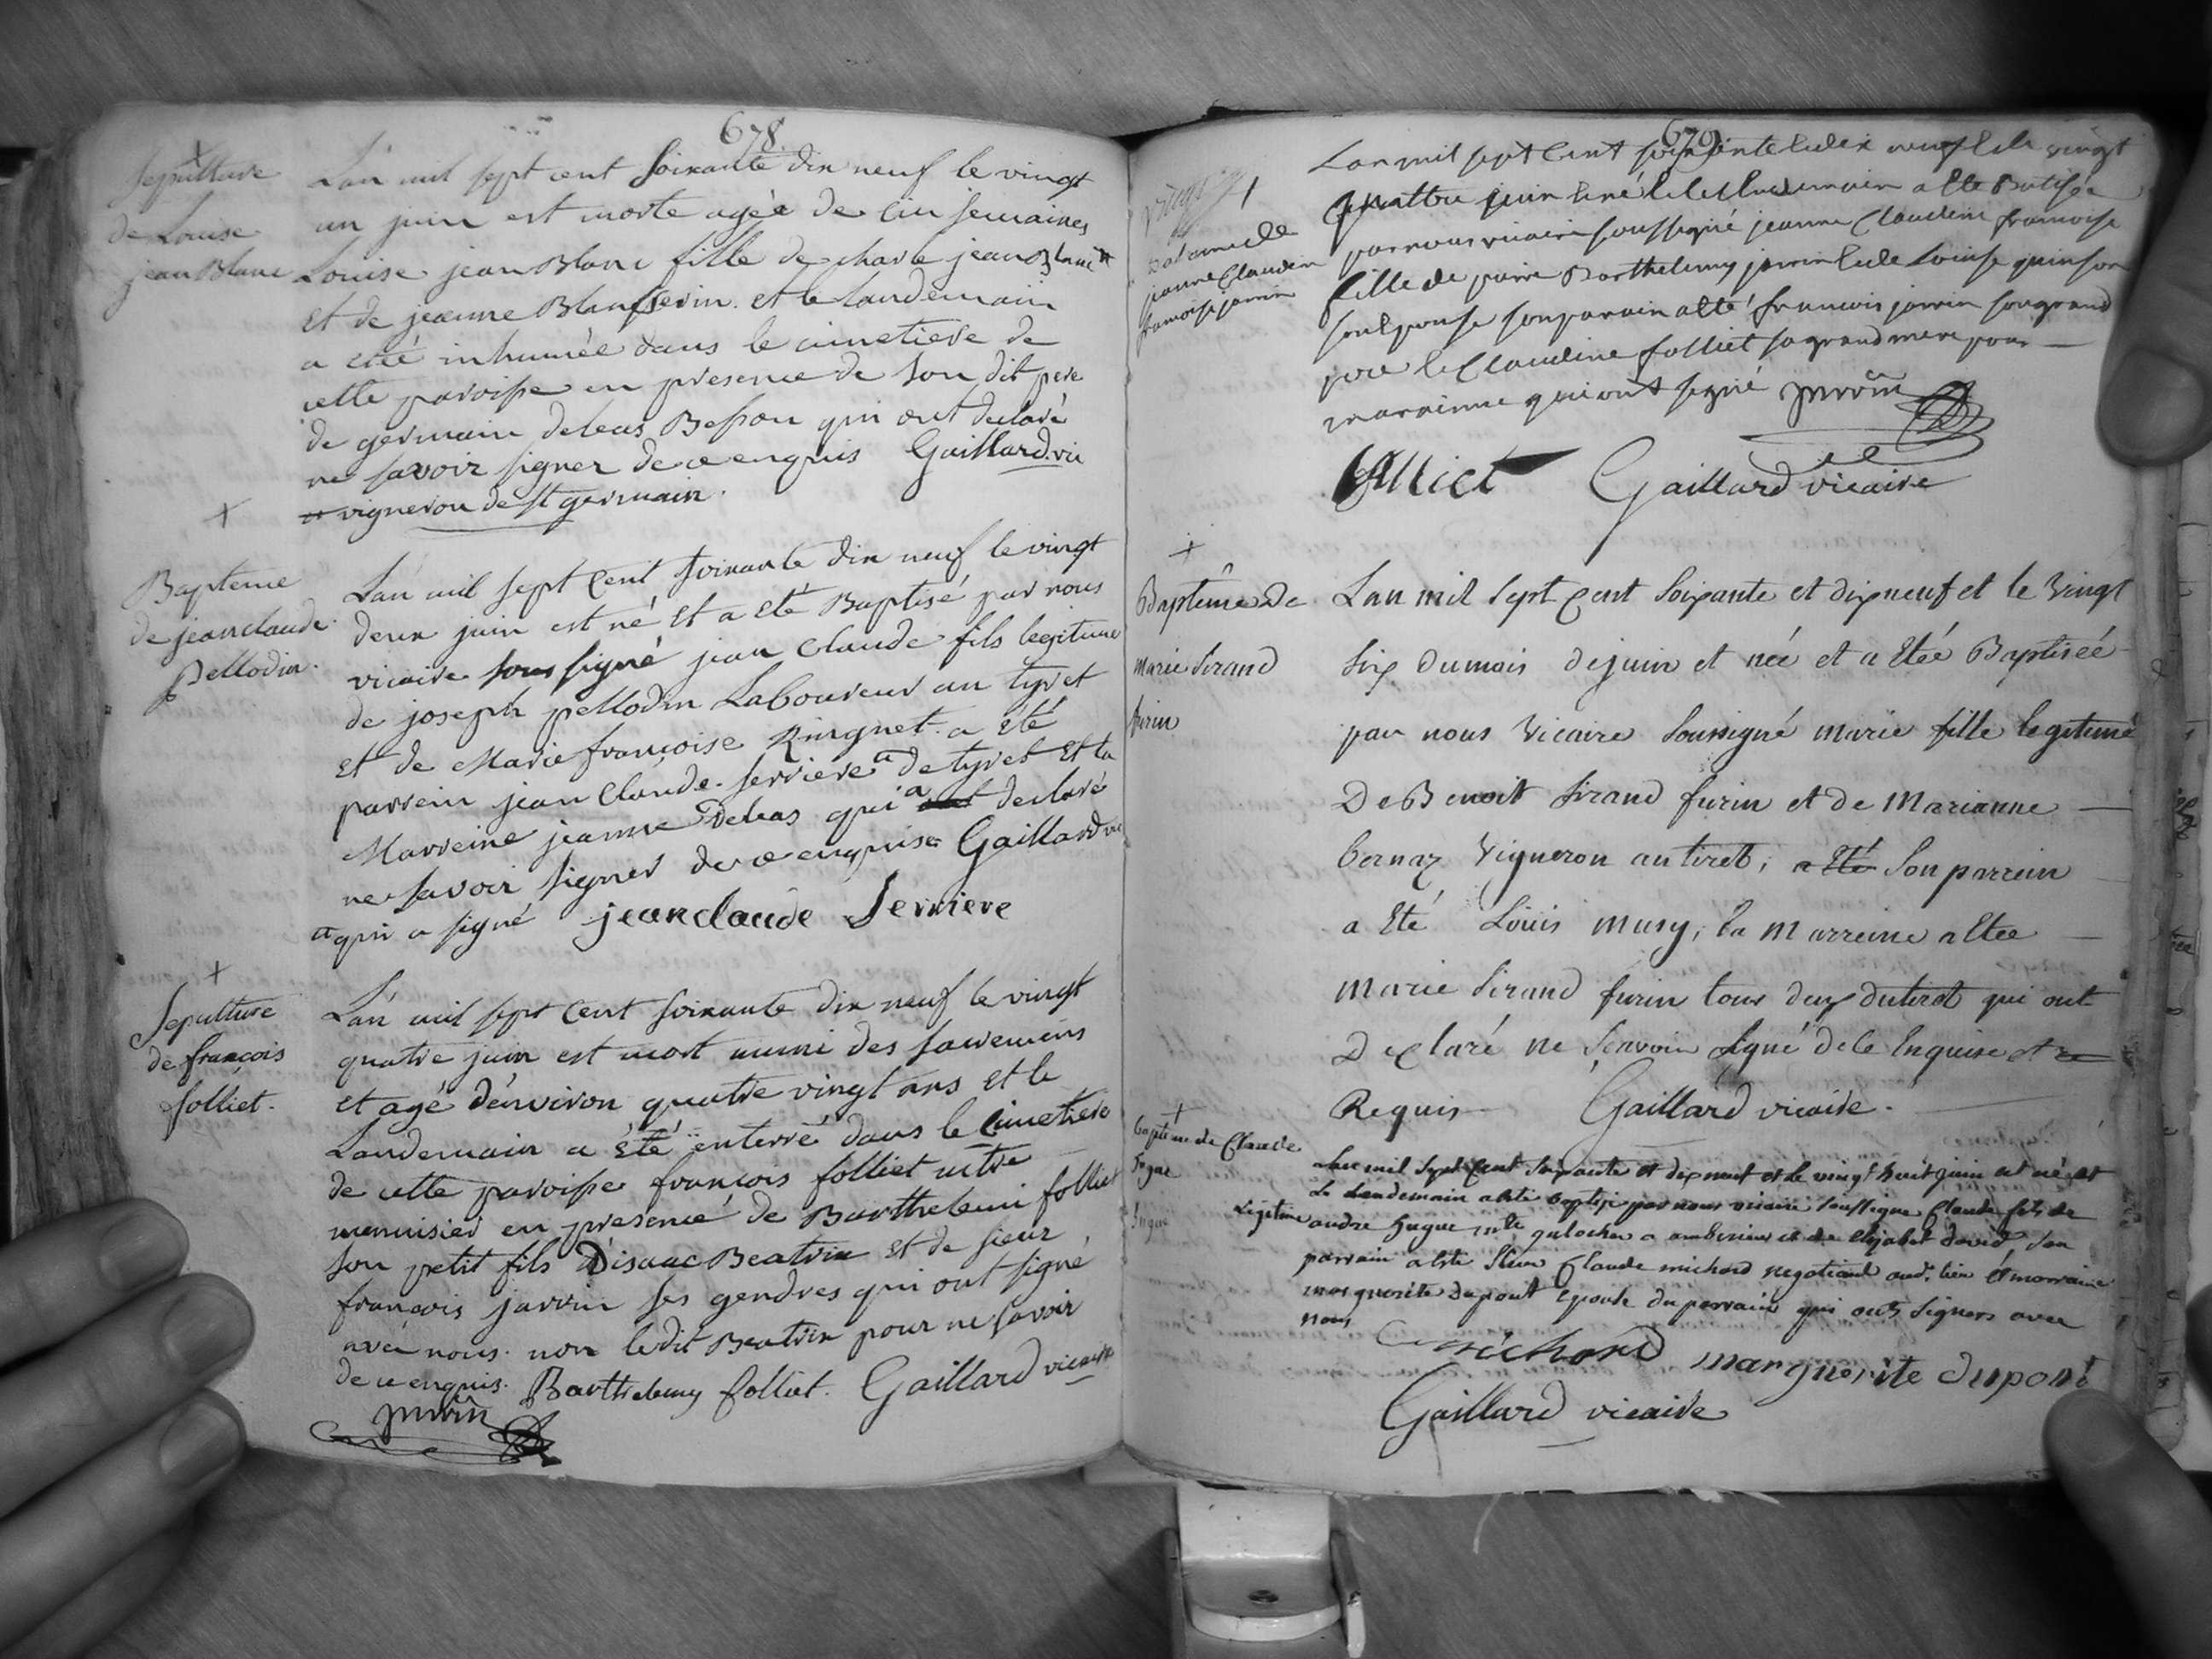 678
Sepulture
de Louise
jean Blanc
L'an mil sept cent soixante dix neuf le vingt
un juin est morte agée de cin semaines
Louise jean Blanc fille de charle jean Blanc
et de jeanne Blanc et le landemain
a été inhumée dans le cimetiere de
cette paroisse en presence de son dit pere
de germain deleas Besson qui ont declaré
ne savoir signer de ce enquis Gaillard vic
vigneron de st germain.
Bapteme
de jean claude
Pellodin.
L'an mil sept cent soixante dix neuf le vingt
deux juin est né et a eté Baptisé par nous
vicaire soussigné jean claude fils legitime
de joseph pellodin Laboureur au tyret
et de Marie françoise Ringnet a été
parrein jean claude serriere de tyret et la
Marreine jeanne deleas qui a declaré
ne savoir signer de ce enquise Gaillard vic
qui a signé jean claude Serriere
Sepulture
de françois
folliet.
L'an mil sept cent soixante dix neuf le vingt
quatre juin est mort muni des sacremens
et agé d'environ quatre vingt ans et le
Landemain a été enterré dans le cimetiere
de cette paroisse françois folliet mtre
menuisier en presence de Barthelemi folliet
son petit fils D'isaac Beatrix et de sieur
françois jarrin ses gendres qui ont signé
avec nous. non ledit Beatrix pour ne savoir
de ce enquis. Barthelemy folliet. Gaillard vicaire
jarrin
679
jeanne Claudin
francoise jarrin
L an mil sept cent soixante et dix neuf et le vingt
quattre juin et né et le landemain a ete Batisée
par nous vicaire soussigné jeanne Claudine francoise
fille de Barthelemy jarrin et de Louise quinson
son epouse son parain a ete francois jarrin son grand
pere et Claudine folliet sa grand mere pour
marainne qui ont signé jarrin
folliet Gaillard vicaire
Baptême de
Marie Sirand
furin
L an mil sept cent soixante et dix neuf et le vingt
six du mois de juin et née et a etée Baptiséé
par nous vicaire soussigné marie fille legitime
De Benoit Sirand furin et de Marianne
bernaz vigneron au tiret; a eté son parrein
a eté Louis musy, la marreine a etee
marie Sirand furin tous deux du tiret qui ont
Declaré ne sçavoir signé de ce enquise et
Requis Gaillard vicaire.
baptême de Claude
hugue
L an mil sept cent soixante et dix neuf et le vingt huit juin est né et
le lendemain a ete baptisé par nous vicaire soussigné Claude fils de
Legitime andre hugue a amberieu et de elizabet david, son
parrain a ete sieur Claude michard negotiant aud. lieu et marraine
marguerite dupont epouse du parrain qui ont signers avec
nous
michard marguerite dupont
Gaillard vicaire